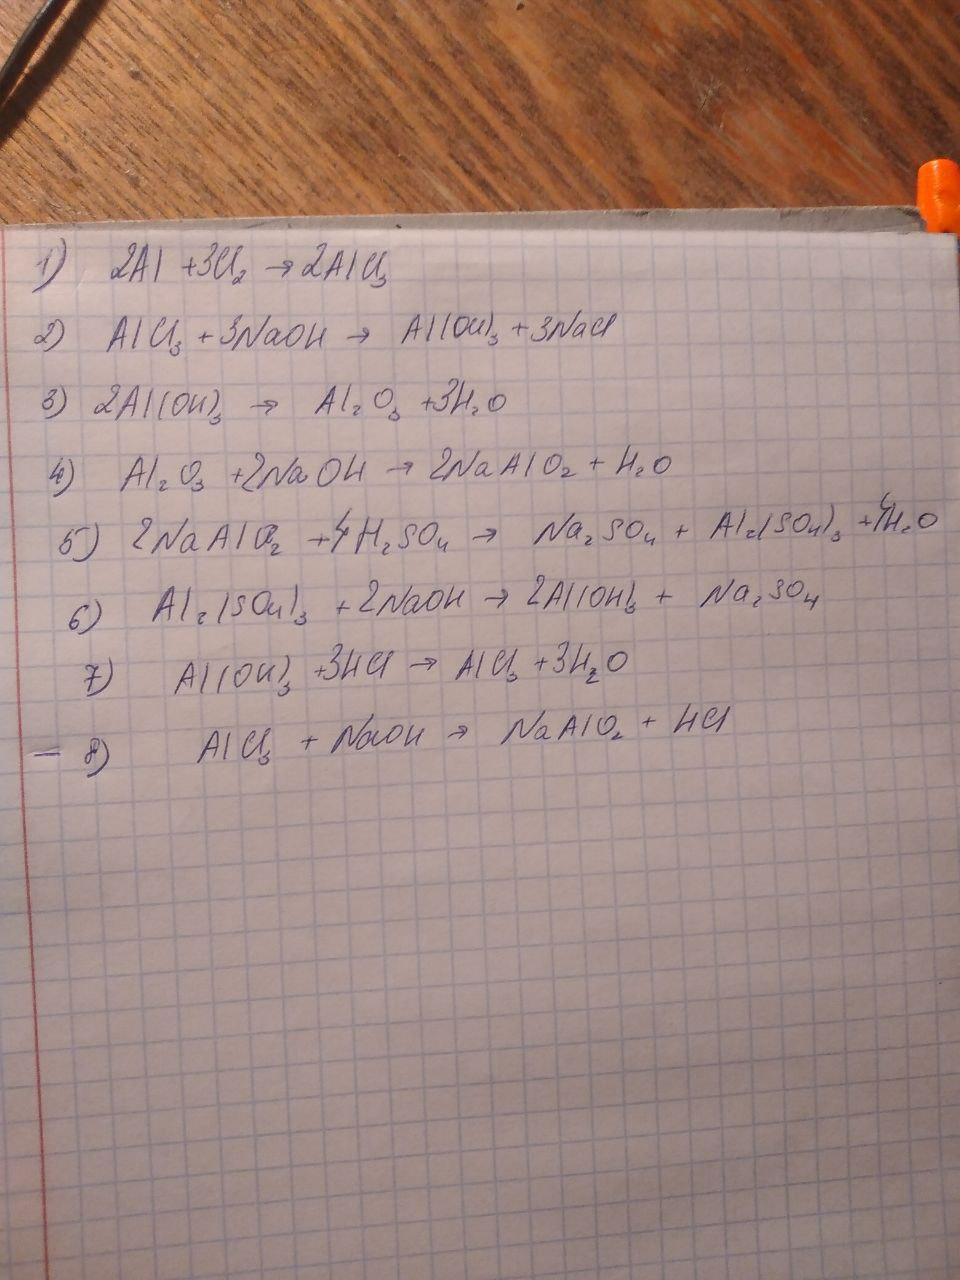 1) 2Al + 3Cl₂ → 2AlCl₃
2) AlCl₃ + 3NaOH → Al(OH)₃ + 3NaCl
3) 2Al(OH)₃ → Al₂O₃ + 3H₂O
4) Al₂O₃ + 2NaOH → 2NaAlO₂ + H₂O
5) 2NaAlO₂ + 4H₂SO₄ → Na₂SO₄ + Al₂(SO₄)₃ + 4H₂O
6) Al₂(SO₄)₃ + 2NaOH → 2Al(OH)₃ + Na₂SO₄
7) Al(OH)₃ + 3HCl → AlCl₃ + 3H₂O
– 8) AlCl₃ + NaOH → NaAlO₂ + HCl